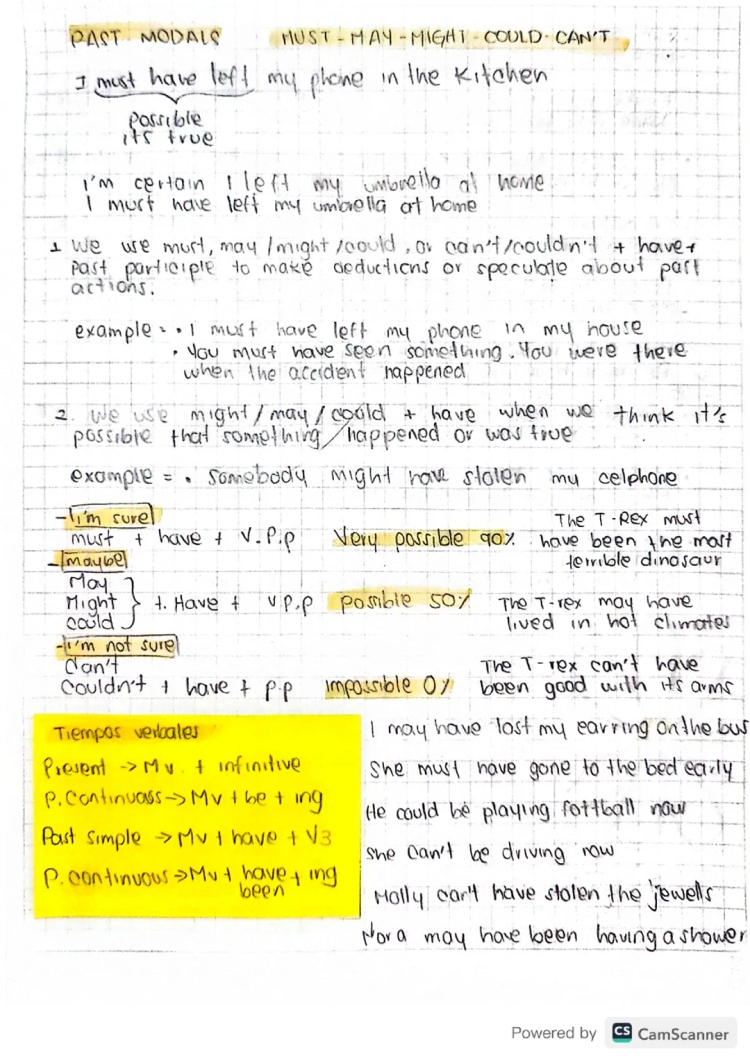 PAST MODALS MUST-MAY-MIGHT-COULD-CAN'T
I must have left my phone in the kitchen
possible
its true
I'm certain I left my umbrella at home
I must have left my umbrella at home
1 We use must, may/might/could, or can't/couldn't + have+
past participle to make deductions or speculate about past
actions.
example = • I must have left my phone in my house
• You must have seen something. You were there
when the accident happened
2. We use might/may/could + have when we think it's
possible that something happened or was true
example = • somebody might have stolen my celphone
- I'm sure
must + have + V.P.p Very possible 90% The T-Rex must
have been the most
terrible dinosaur
- maybe
May
Might
could
+. Have + v p.p possible 50% The T-rex may have
lived in hot climates
- I'm not sure
Can't
Couldn't + have + p.p impossible 0% The T-rex can't have
been good with its arms
Tiempos verbales
Present -> Mv. + infinitive
P.Continuass -> Mv + be + ing
Past simple -> Mv + have + V3
P.continuous -> Mv + have + ing
been
I may have lost my earring on the bus
She must have gone to the bed early
He could be playing fottball now
She can't be driving now
Molly can't have stolen the jewells
Nora may have been having a shower
Powered by CS CamScanner